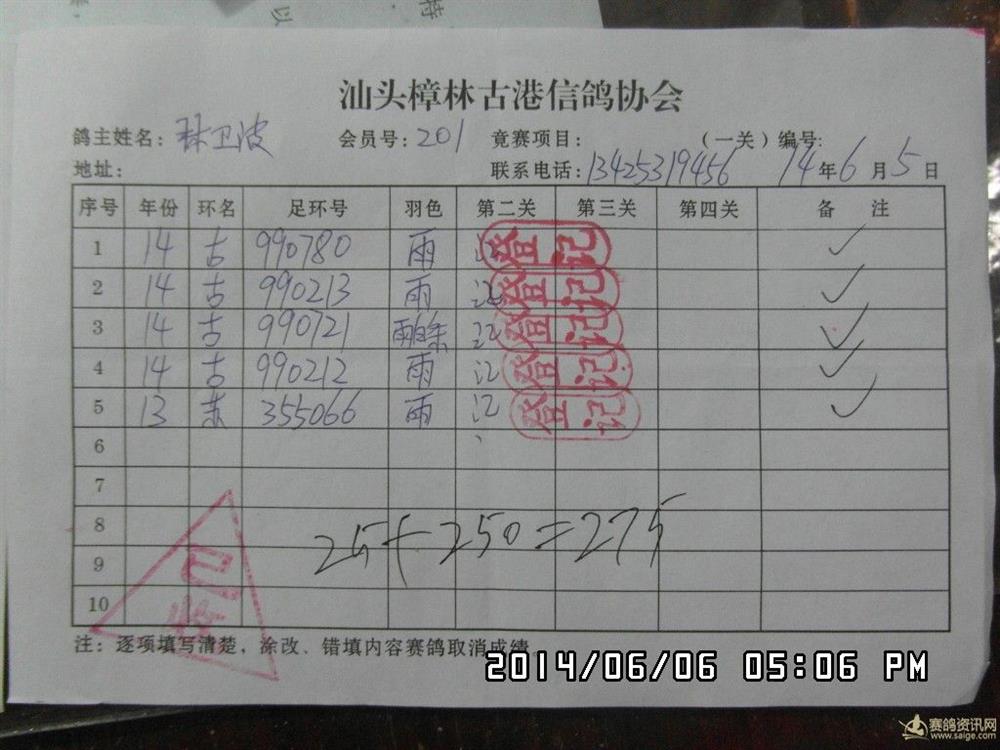 汕头樟林古港信鸽协会
鸽主姓名: 林卫波 会员号: 201 竟赛项目: (一关)编号:
地址: 联系电话: 13425319456 14年6月5日
序号 年份 环名 足环号 羽色 第二关 第三关 第四关 备 注
1 14 古 990780 雨 登记 ✓
2 14 古 990213 雨 江 登记 ✓
3 14 古 990721 雨白条 江 登记 ✓
4 14 古 990212 雨 江 登记 ✓
5 13 355066 雨 江 登记 ✓
6
7
8
25+250=275
9
10
注: 逐项填写清楚,涂改、错填内容赛鸽取消成绩。
2014/06/06 05:06 PM
赛鸽资讯网
www.saige.com